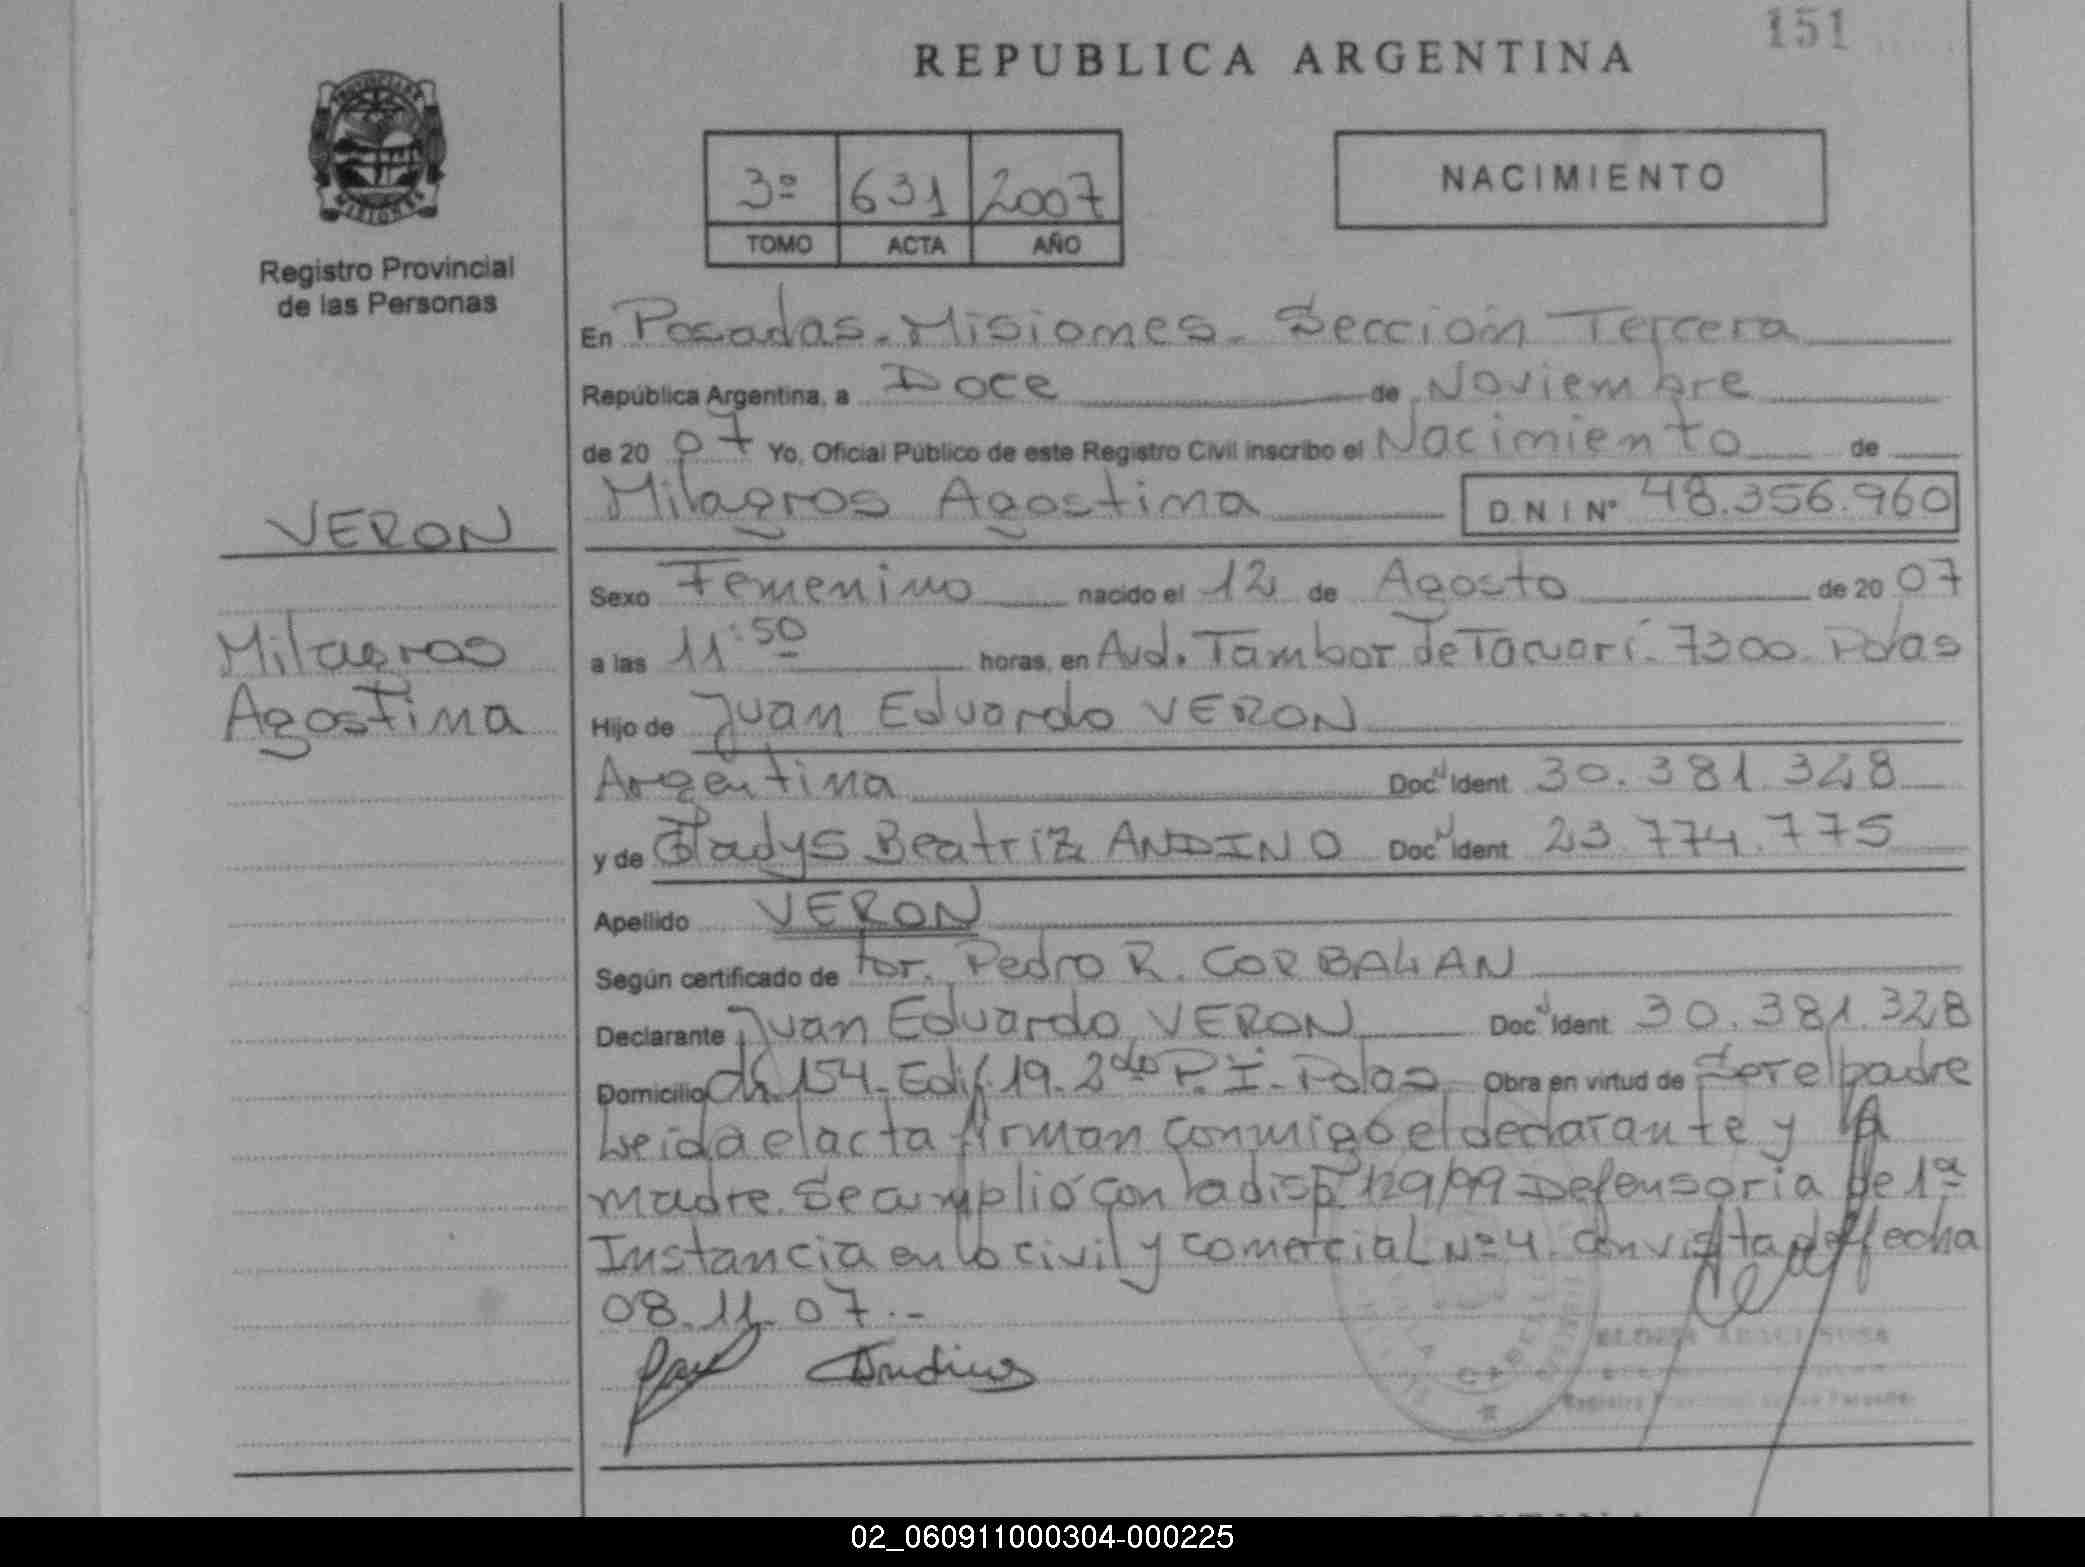 151
REPUBLICA ARGENTINA
3º 631 2007
TOMO ACTA AÑO
NACIMIENTO
Registro Provincial
de las Personas
En Posadas. Misiones. Sección Tercera
República Argentina, a Doce de Noviembre
de 20 07 Yo, Oficial Público de este Registro Civil inscribo el Nacimiento de
Milagros Agostina D N I Nº 48.356.960
VERON
Milagros
Agostina
Sexo Femenino nacido el 12 de Agosto de 20 07
a las 11:50 horas, en Avd. Tambor de Tacuarí. 7300. Pdas
Hijo de Juan Eduardo VERON
Argentina Doc Ident 30.381.328
y de Gladys Beatriz ANDINO Doc Ident 23.774.775
Apellido VERON
Según certificado de Pedro R. CORBALAN
Declarante Juan Eduardo VERON Doc Ident 30.381.328
Domicilio Ch 154. Edif. 19. 2do P. I. Pdas Obra en virtud de Ser el padre
Leida el acta firman conmigo el declarante y la
madre. Se cumplió con la disp. 129/99 Defensoria de 1ª
Instancia en lo civil y comercial Nº 4. con vista de fecha
08.11.07.-
Andino
02_060911000304-000225